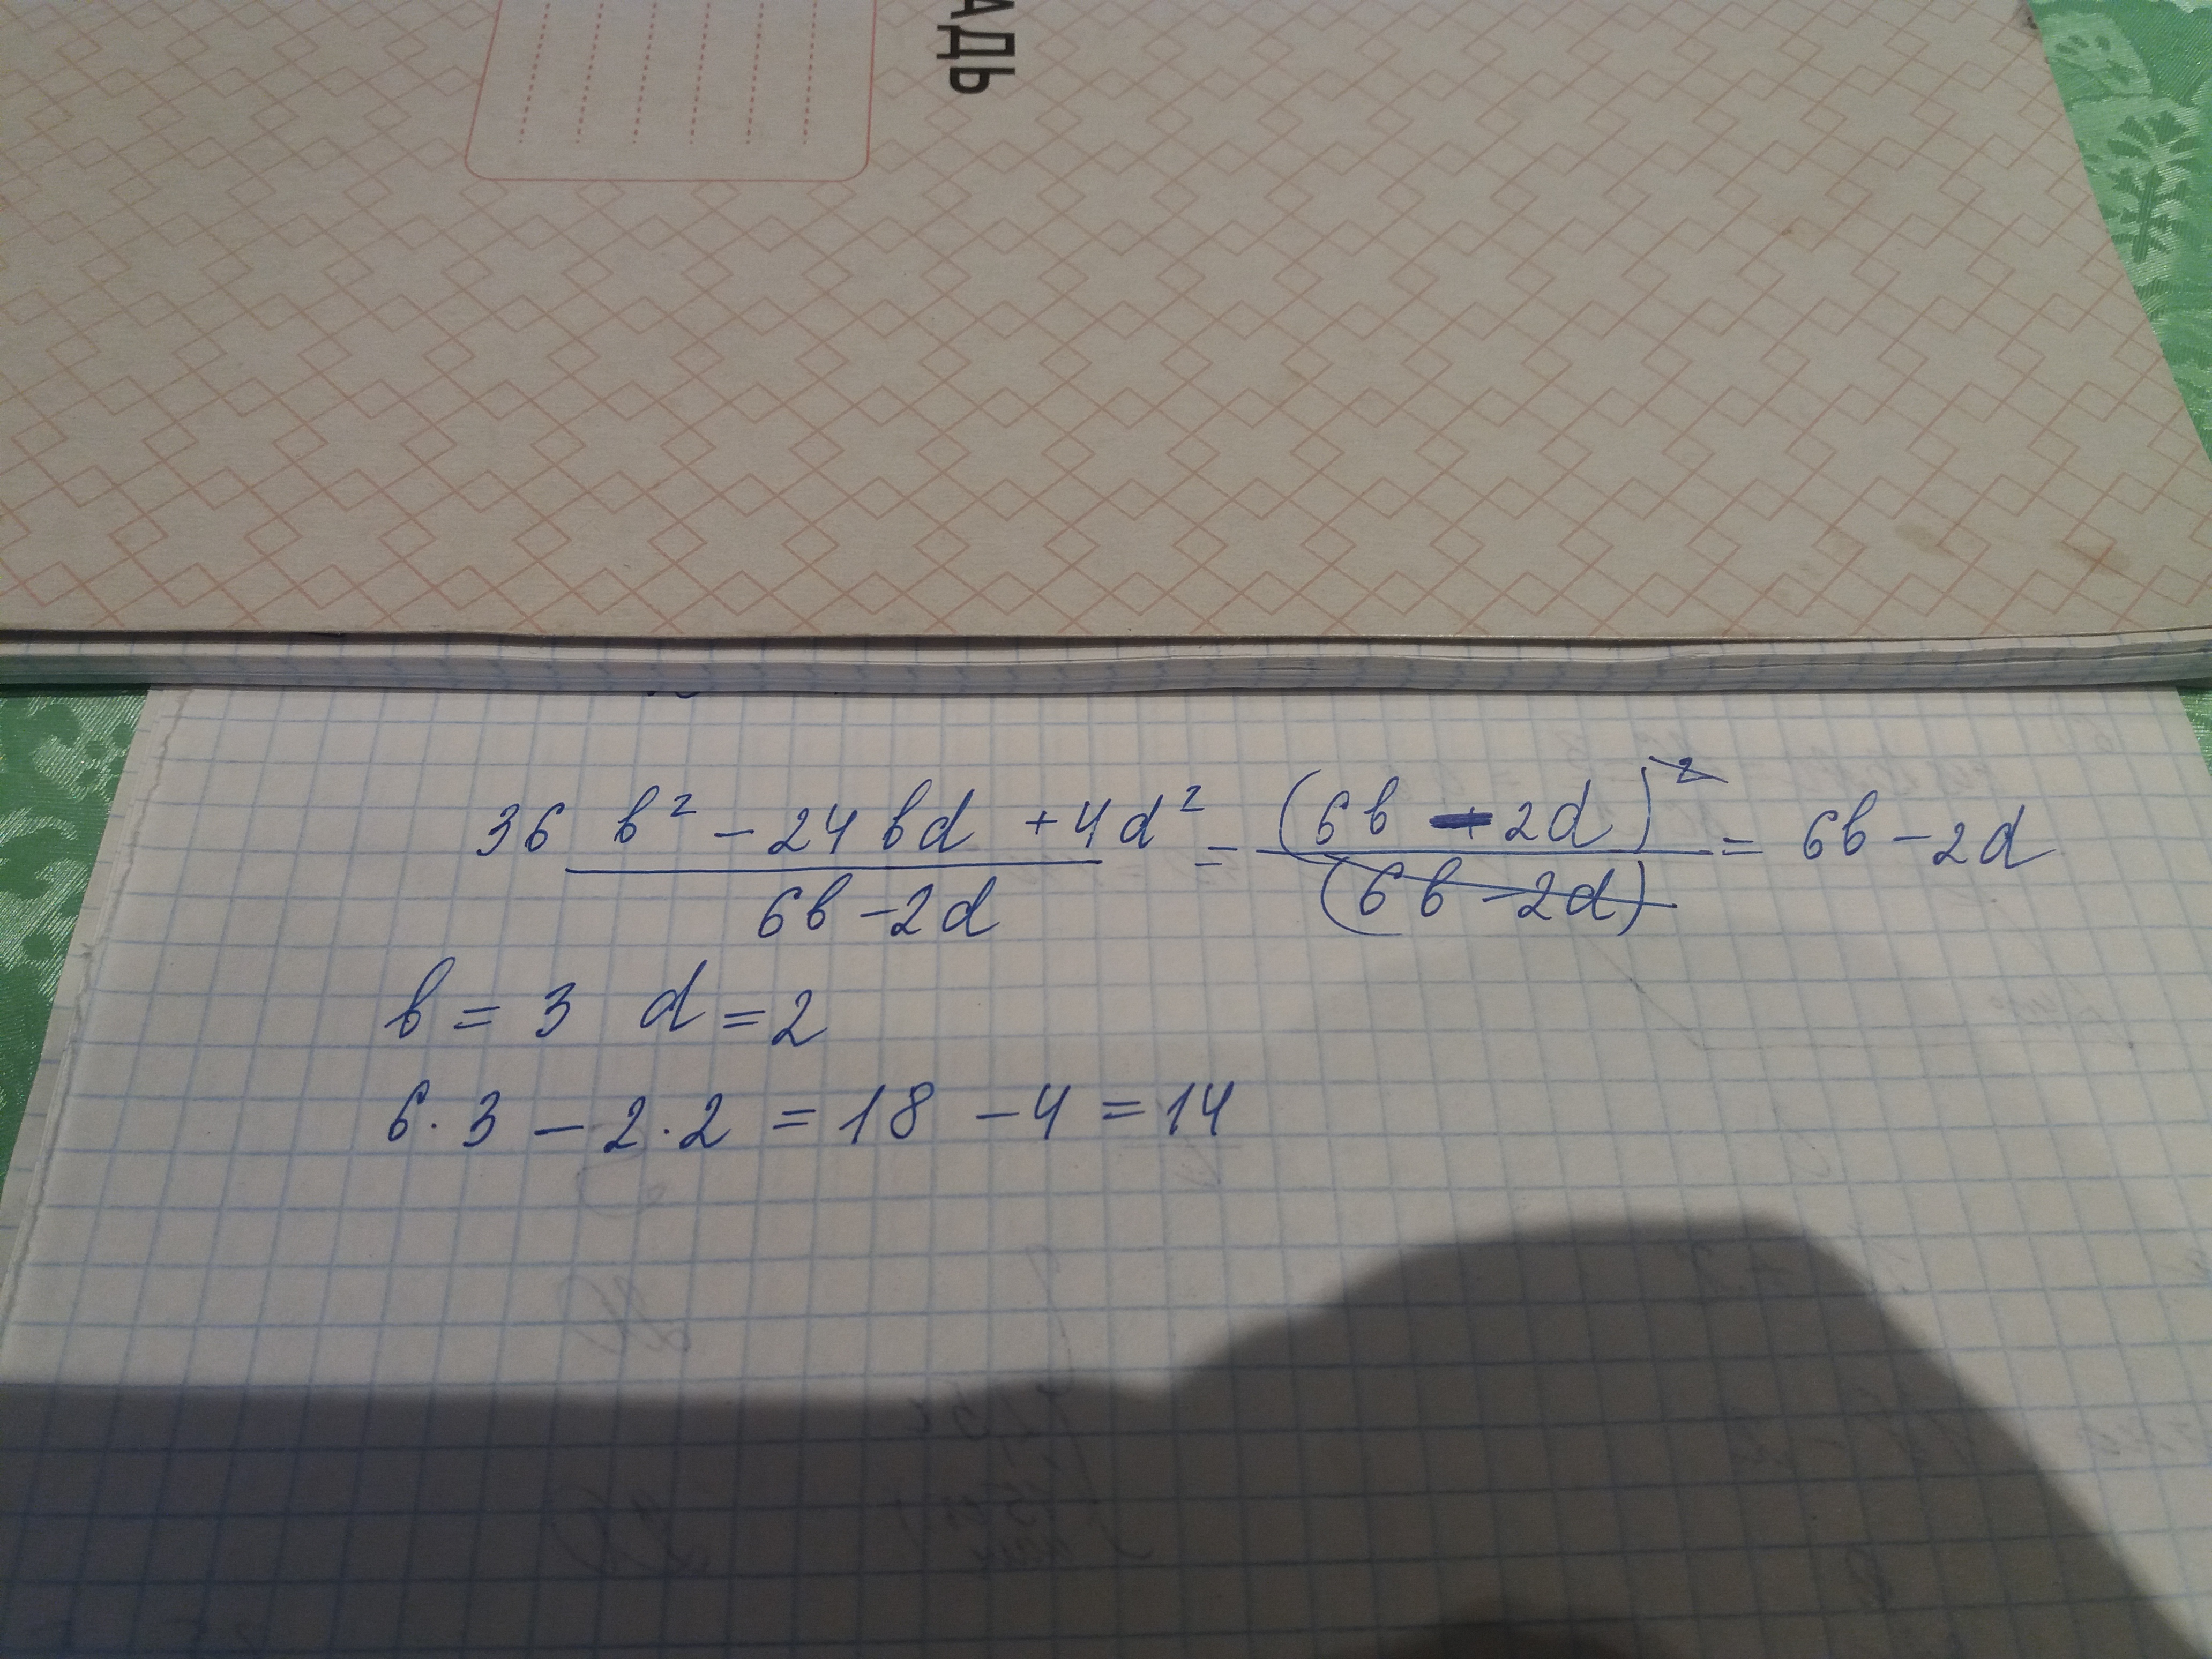 АДЬ
36 b² - 24 bd + 4d² / 6b - 2d = (6b - 2d)² / (6b - 2d) = 6b - 2d
b = 3 d = 2
6 · 3 - 2 · 2 = 18 - 4 = 14